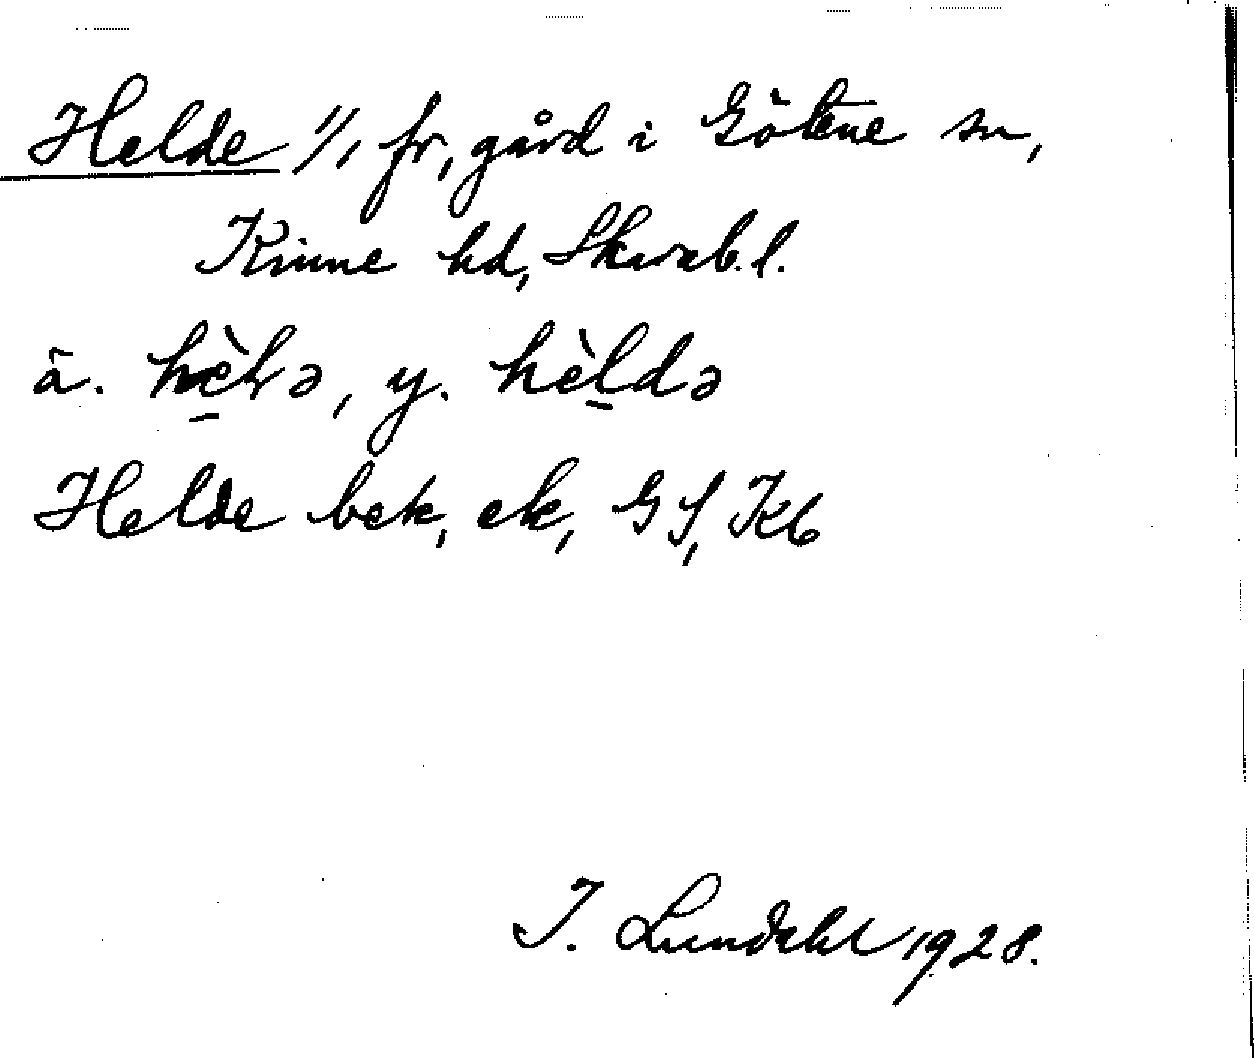 Helde 1/1 fr, gård i Götene sn,
Kinne hd, Skarab. l.
ä. , y. hèldə
Helde bek, ek, GS, Kb
I. Lundahl 1928.